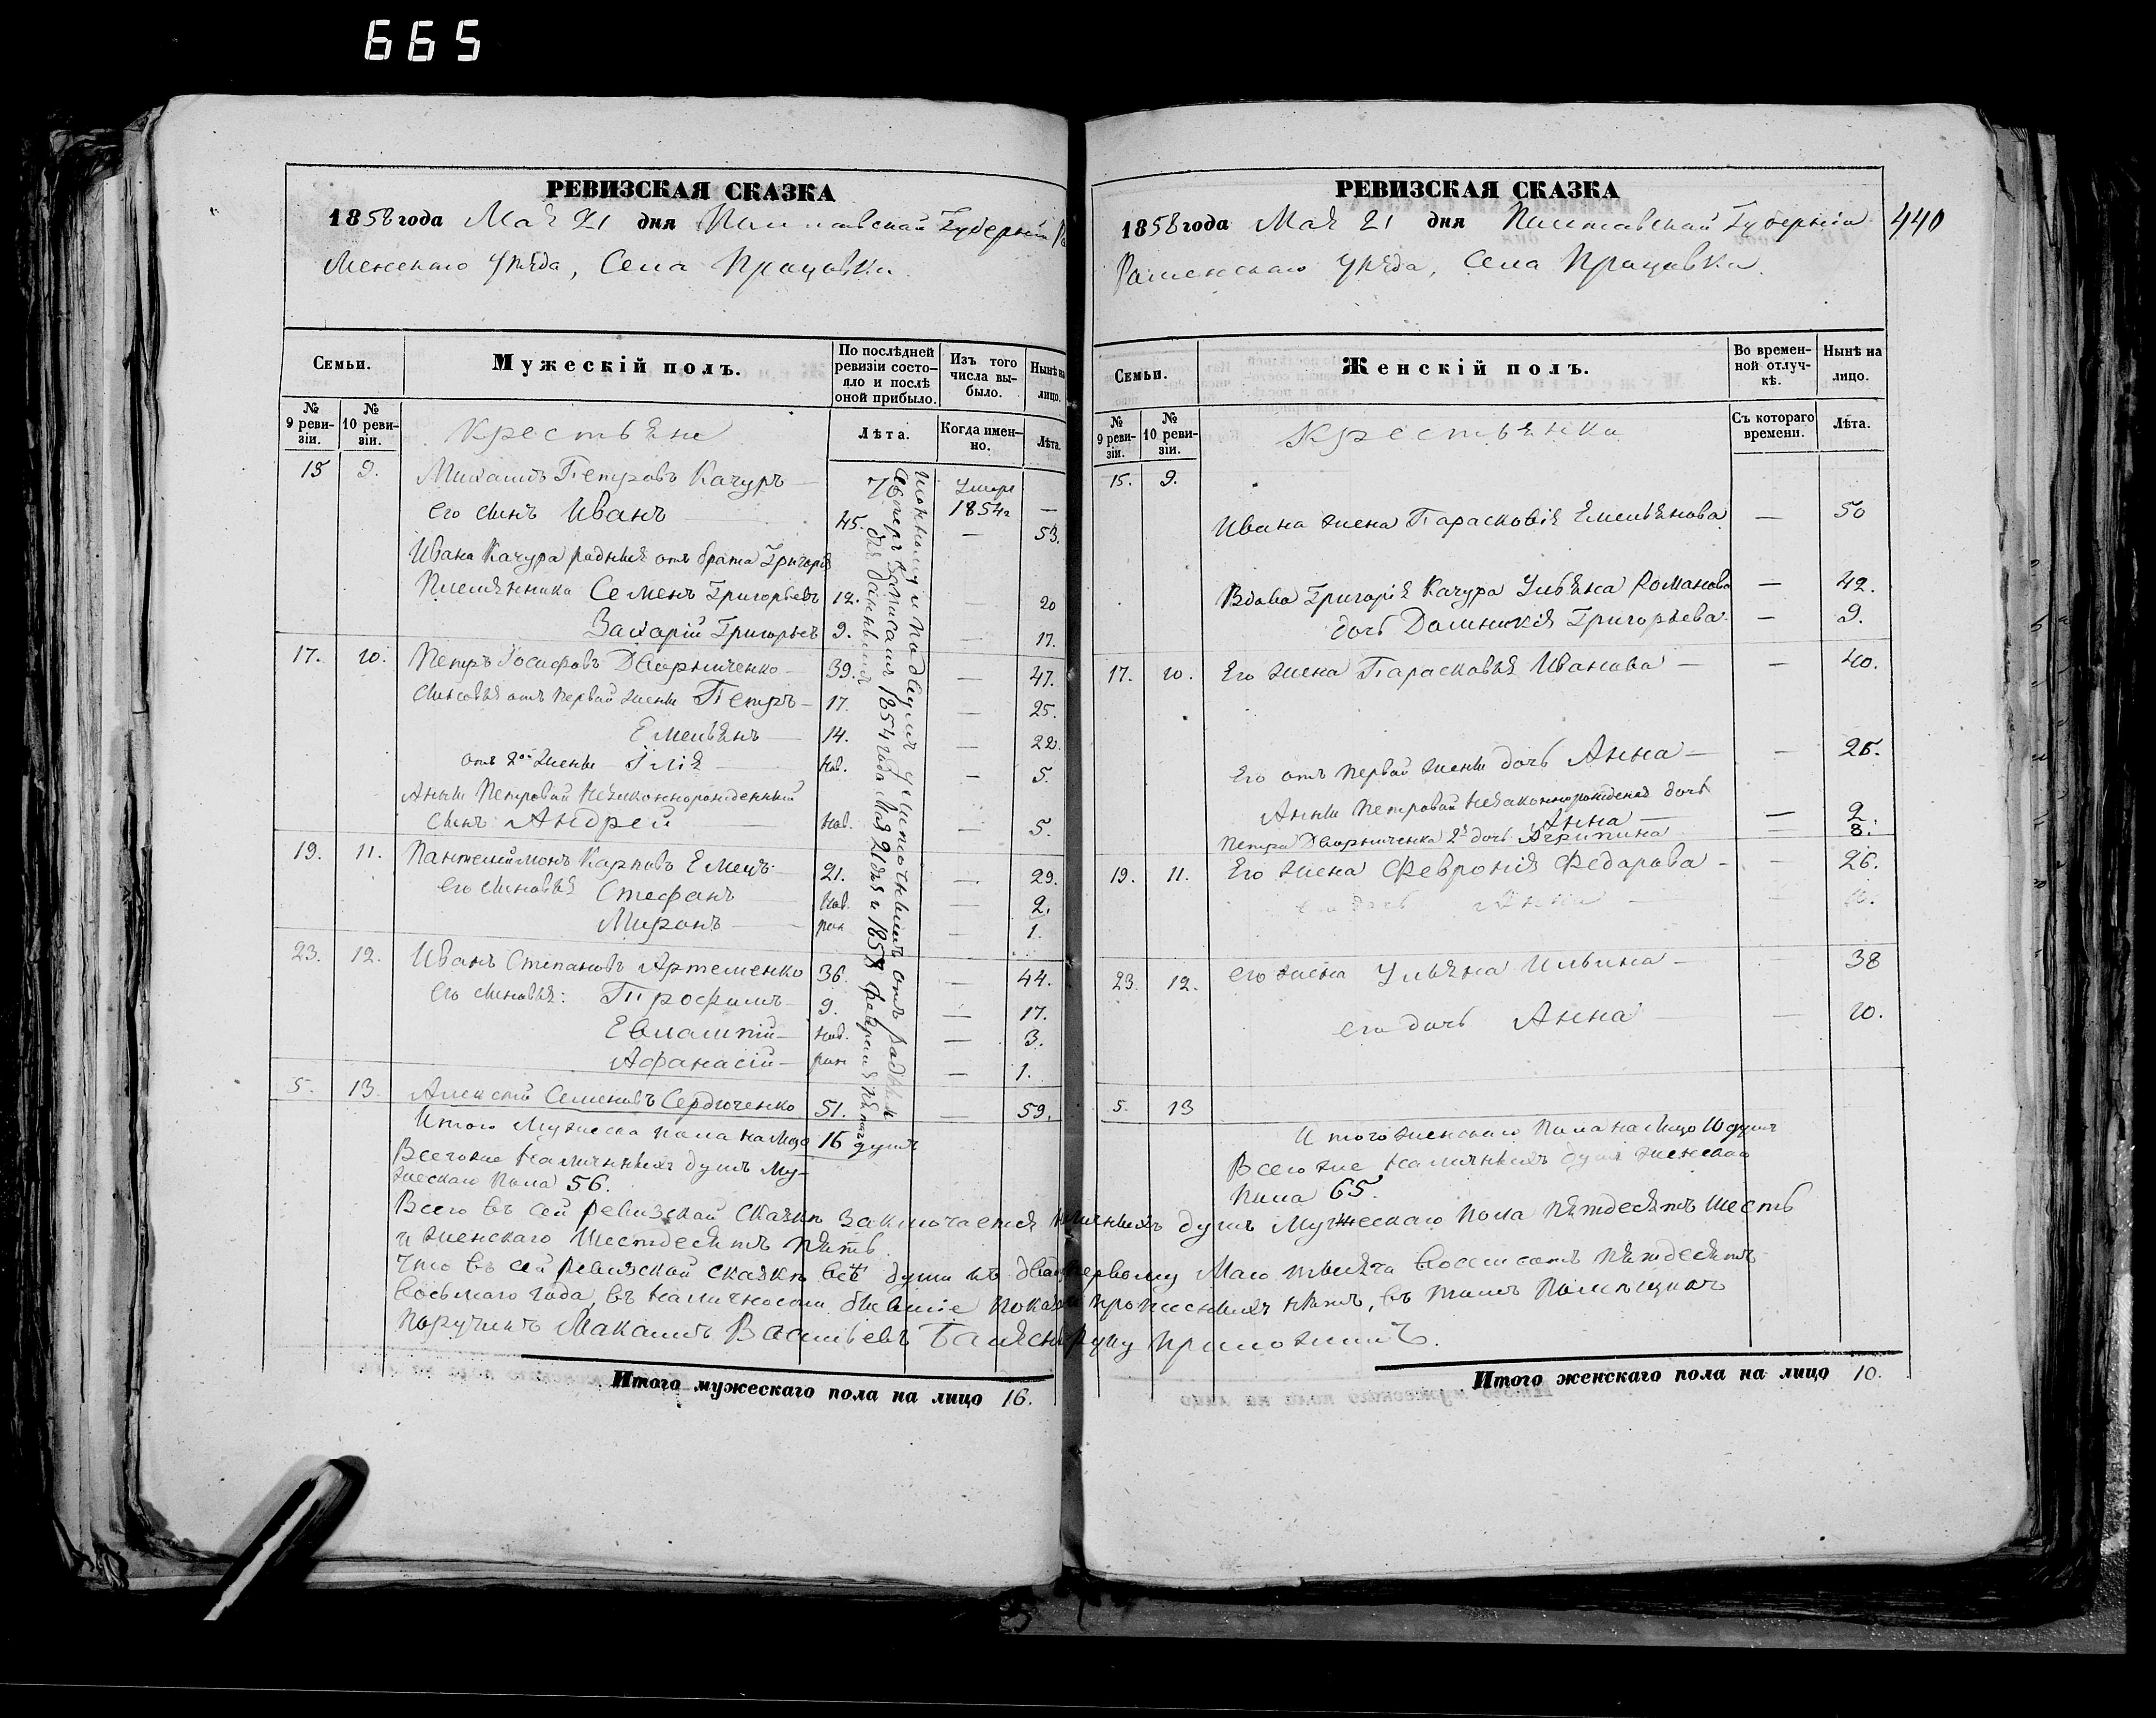 665
РЕВИЗСКАЯ СКАЗКА
1858 года Мая 21 дня Полтавской Губерніи Ро
менскаго уѣзда, Села Процовки.
Семьи.
Мужескій полъ.
По послѣдней ревизіи состояло и послѣ оной прибыло.
Изъ того числа выбыло.
Нынѣ на лицо.
№ 9 ревизіи.
№ 10 ревизіи.
Крестьяне
Лѣта.
Когда именно.
Лѣта.
15 9. Михаилъ Петровъ Качуръ — 76 Умеръ 1854г —
его сынъ Иванъ 45. — 53.
Ивана Качура родныя отъ брата Григорія
Племянники Семенъ Григорьевъ 12. — 20
Захарій Григорьевъ 9. — 17.
17. 10. Петръ Іосифовъ Дворниченко — 39. — 47.
Сыновья отъ первой жены Петръ — 17. — 25.
Емельянъ — 14. — 22.
отъ 2ой жены — Ілія — нов. — 5.
Анны Петровой незаконнорожденный
сынъ Андрей нов. — 5.
19. 11. Пантелиймонъ Карповъ Емецъ 21. — 29.
его сыновья Стефанъ нов. — 2.
Миронъ — рож — 1.
23. 12. Иванъ Степановъ Артеменко 36. — 44.
Его сыновья: Трофимъ — 9. — 17.
Евлампій — нов. — 3.
Афанасій — рож — 1.
5. 13. Алексѣй Семеновъ Сердюченко 51. — 59.
Итого Мужеска пола на лицо 16 душъ
Всего же наличныхъ душъ Му-
жескаго пола 56.
Всего въ сей ревизской сказкѣ заключается
и женскаго шестдесятъ пять.
Что въ сей ревизской сказкѣ всѣ души къ
Восьмаго года, въ наличности бывшіе
Поручикъ Васильевъ
Итого мужескаго пола на лицо 16.
РЕВИЗСКАЯ СКАЗКА
1858 года Мая 21 дня Полтавской Губерніи 440
Роменскаго уѣзда, Села Процовки.
Семьи.
Женскій полъ.
Во временной отлучкѣ.
Нынѣ на лицо.
№ 9 ревизіи.
№ 10 ревизіи.
Крестьянки
Съ котораго времени.
Лѣта.
15. 9.
Ивана жена Парасковія Емельянова — 50
Вдова Григорія Качура Ульяна Романова — 42.
дочь Домникія Григорьева — 9.
17. 10. Его жена Парасковья Иванова — — 40.
Его отъ первой жены дочь Анна — — 25.
Анны Петровой незаконнорожденая дочь
Анна — — 2.
Петра Дворниченка 2я дочь Агрипина — 8.
19. 11. Его жена Февронія Федорова — — 26.
его дочь Анна
23. 12. его жена Ульяна Ильина — 38
его дочь Анна — 10.
5. 13
Итого женскаго пола на лицо 10 душъ
Всего же наличныхъ душъ женскаго
пола 65.
душъ Мужескаго пола пятдесятъ шесть
первому Маю тысяча восемсотъ пятдесятъ
прописныхъ нѣтъ, въ томъ Помѣщикъ
руку приложилъ.
Итого женскаго пола на лицо 10.